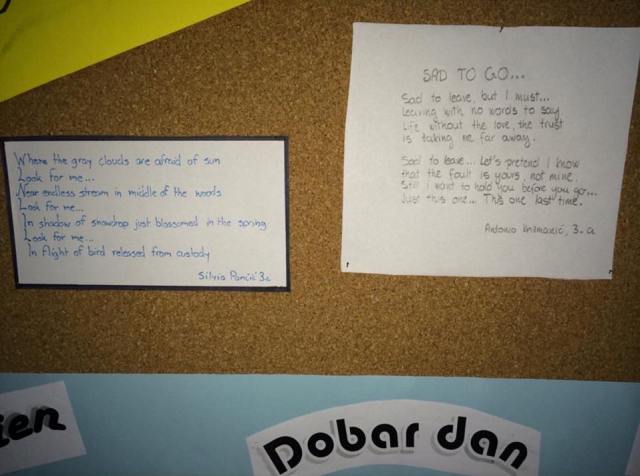 Where the gray clouds are afraid of sun
Look for me...
Near endless stream in middle of the woods
Look for me...
In shadow of snowdrop just blossomed in the spring
Look for me...
In flight of bird released from custody
Silvia 3.a
SAD TO GO...
Sad to leave, but I must...
Leaving with no words to say.
Life without the love, the trust
is taking me far away.
Sad to leave... Let's pretend I know
that the fault is yours, not mine.
Still I want to hold you before you go...
Just this one... This one last time.
Antonio 3.a
ien
Dobar dan